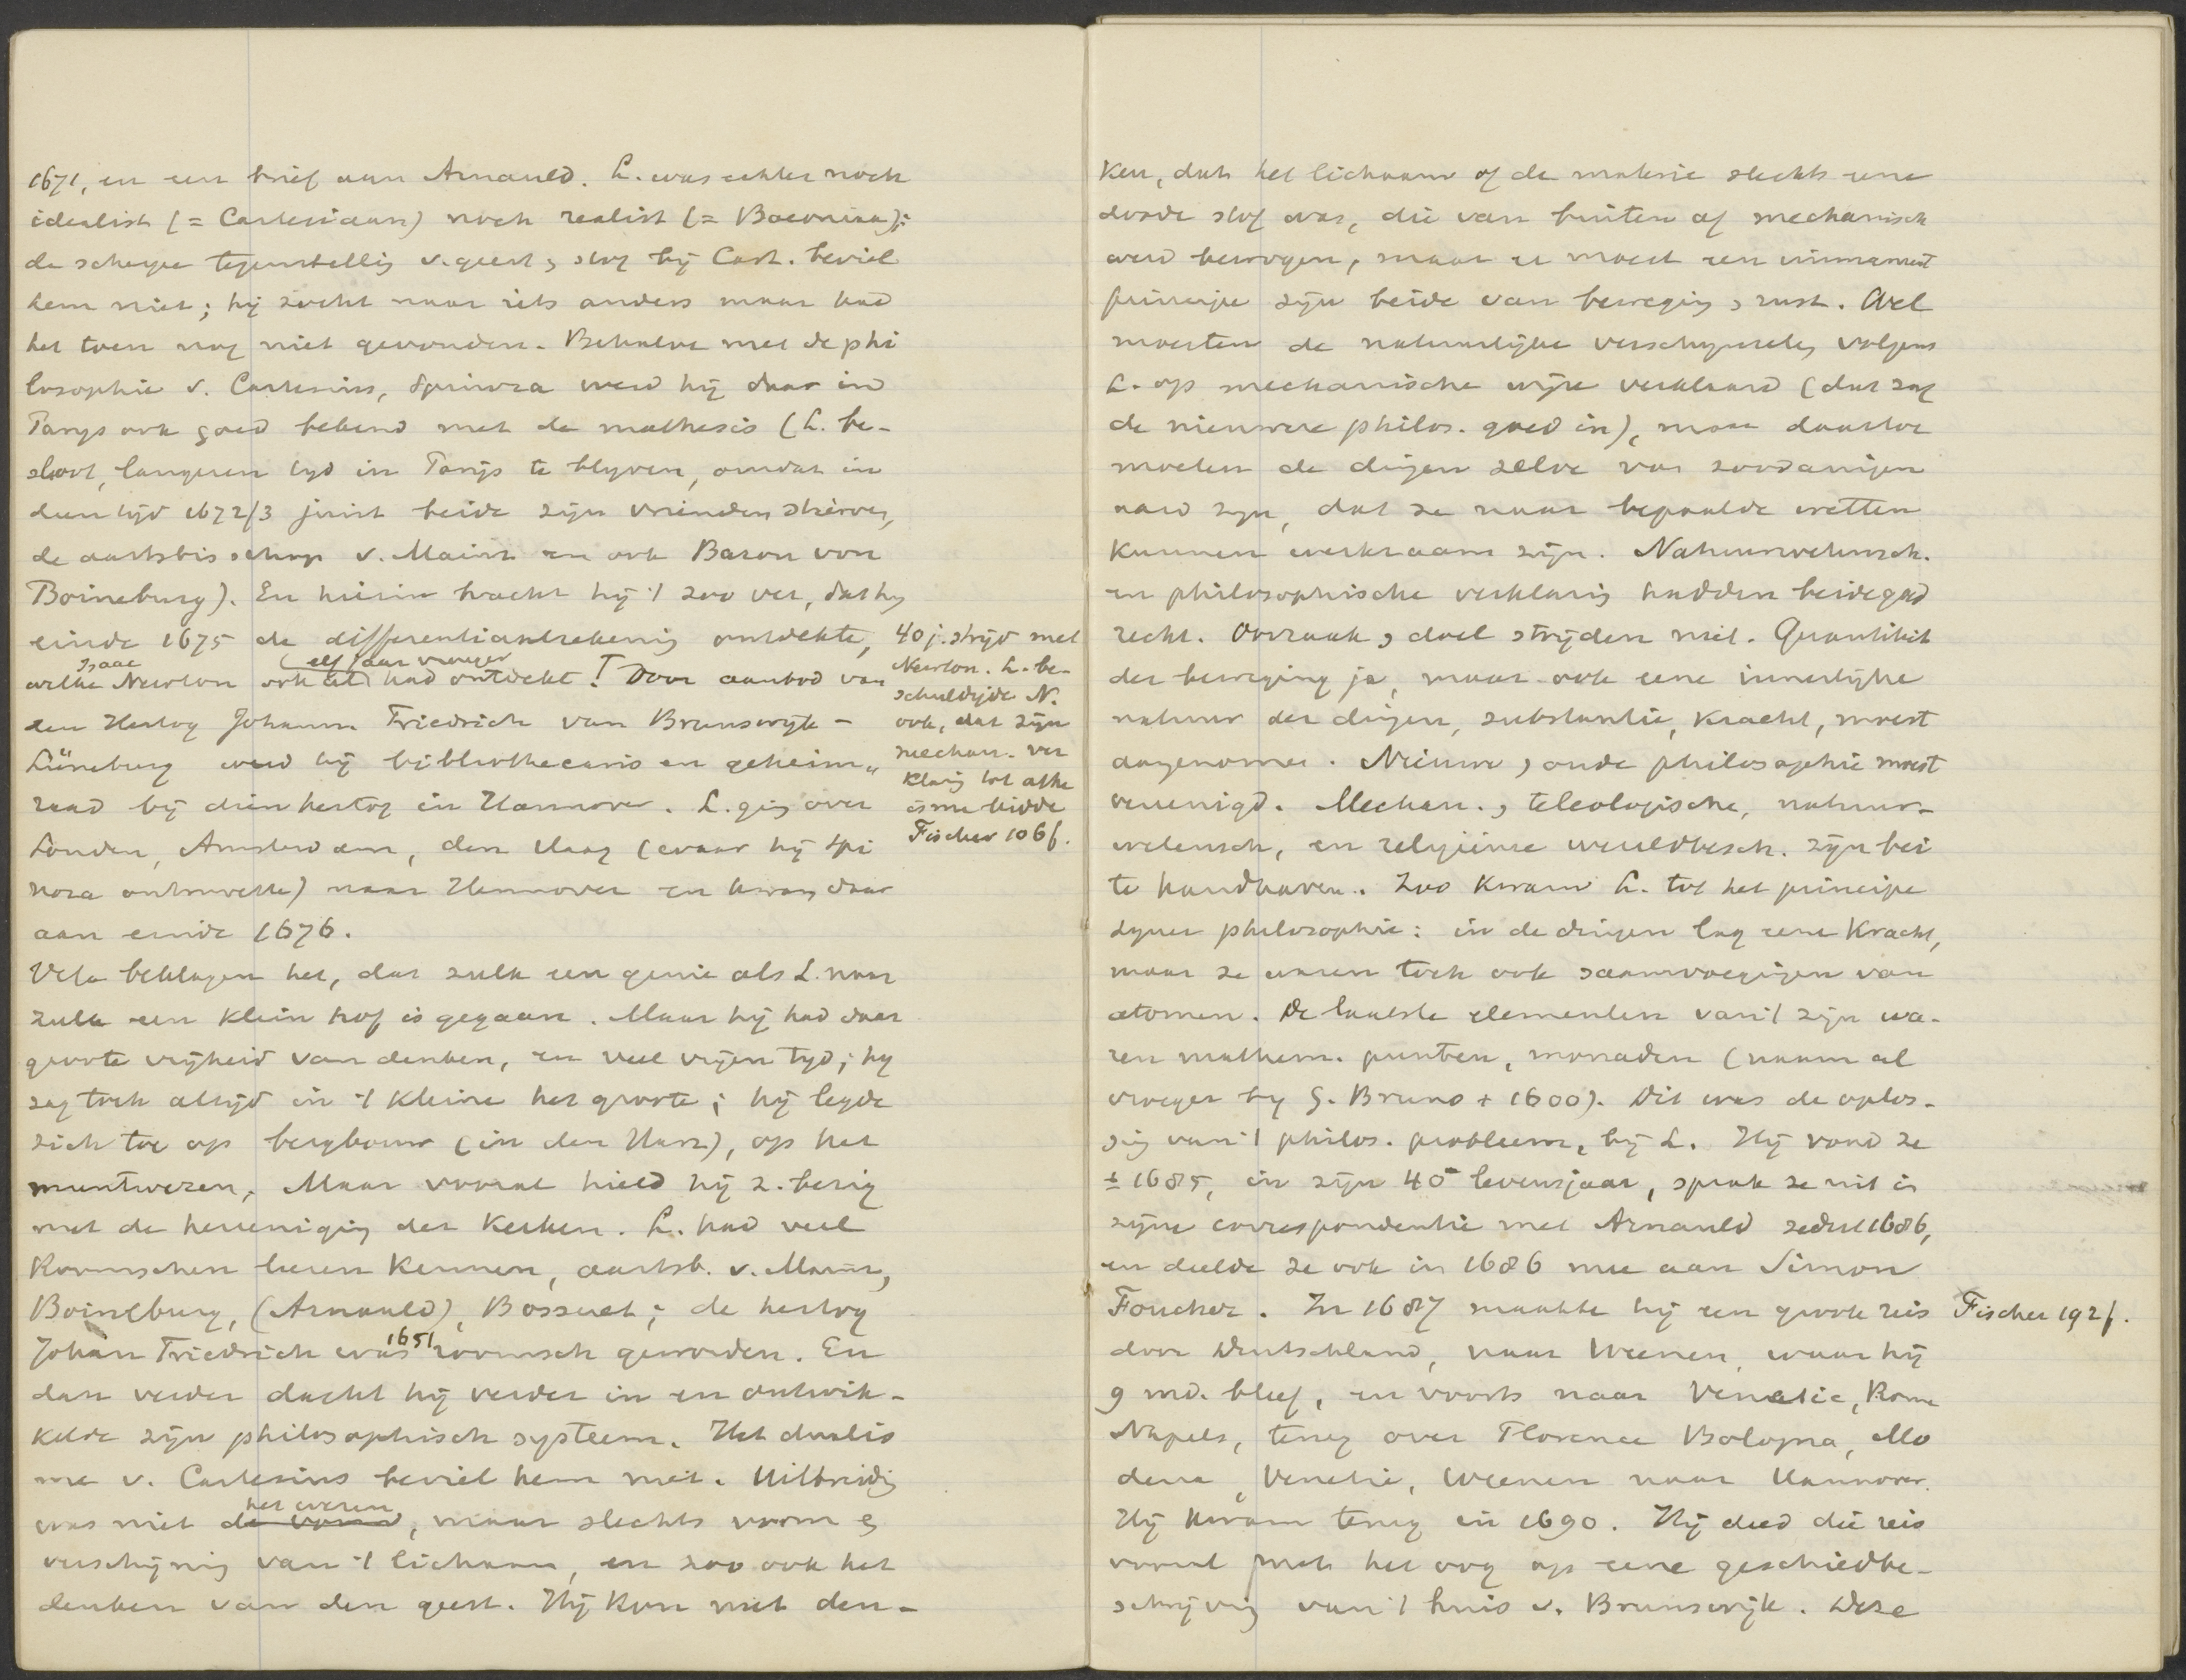 1671, en een brief aan Arnauld. L. was echter noch
idealist (= Cartesiaan) noch realist (= Baconiaan);
de scherpe tegenstelling v. geest & stof bij Cart. beviel
hem niet; hij zocht naar iets anders maar had
het toen nog niet gevonden. Behalve met de phi
losophie v. Cartesius, Spinoza werd hij daar in
Parijs ook goed bekend met de mathesis (L. be-
sloot, langeren tyd in Parijs te blyven, omdat in
dien tijd 1672/3 juist beide zijn vrienden stierven,
de aartsbisschop v. Mainz en ook Baron von
Boineburg). En hierin bracht hij 't zoo ver, dat hy
einde 1675 de differentiaalrekening ontdekte,
welke Isaac Newton ook al (elf jaar vroeger) had ontdekt! Door aanbod van
den Hertog Johann Friedrich van Brunswijk-
Lüneburg werd hij bibliothecaris en geheim„
raad bij dien hertog in Hannover. L. ging over
Londen, Amsterdam, den Haag (waar hij Spi
noza ontmoette) naar Hannover en kwam daar
aan einde 1676.
Vele beklagen het, dat zulk een genie als L. naar
zulk een klein hof is gegaan. Maar hij had daar
groote vrijheid van denken, en veel vrijen tyd; hy
zag toch altijd in 't kleine het groote; hij legde
zich toe op bergbouw (in den Harz), op het
muntwezen. Maar vooral hield hij z. bezig
met de hereeniging der Kerken. L. had veel
Roomschen leeren kennen, aartsb. v. Mainz,
Boineburg, (Arnauld), Bossuet; de hertog
Johan Friedrich was 1651 roomsch geworden. En
dan verder dacht hij verder in en ontwik-
kelde zijn philosophisch systeem. Het dualis
me v. Cartesius beviel hem niet. Uitbreiding
was niet het wezen, maar slechts vorm &
verschijning van 't lichaam, en zoo ook het
denken van den geest. Hij kon niet den-
40 j. strijd met
Newton. L. be-
schuldigde N.
ook, dat zijn
mechan. ver
klaring tot athe
isme leidde
Fischer 106 f.
ken, dat het lichaam of de materie slechts eene
doode stof was, die van buiten af mechanisch
werd bewogen, maar er moest een immanent
principe zijn beide van beweging & rust. Wel
moesten de natuurlijke verschynselen volgens
L. op mechanische wijze verklaard (dat zag
de nieuwere philos. goed in), maar daartoe
moeten de dingen zelve van zoodanigen
aard zijn, dat ze naar bepaalde wetten
kunnen werkzaam zijn. Natuurwetensch.
en philosophische verklaring hadden beide goed
recht. Oorzaak & doel strijden niet. Quantiteit
der beweging ja, maar ook eene innerlijke
natuur der dingen, substantie, kracht, moest
aangenomen. Nieuwe & oude philosophie moest
vereenigd. Mechan. & teleologische, natuur-
wetensch. en religieuse wereldbesch. zijn bei
te handhaven. Zoo kwam L. tot het principe
zyner philosophie: in de dingen lag eene Kracht,
maar ze waren toch ook saamvoegingen van
atomen. De laatste elementen van 't zijn wa-
ren mathem. punten, monaden (naam al
vroeger by G. Bruno + 1600). Dit was de oplos-
sing van 't philos. probleem, bij L. Hij vond ze
± 1685, in zijn 40e levensjaar, sprak ze uit in
zijne correspondentie met Arnauld sedert 1686,
en deelde ze ook in 1686 mee aan Simon
Foucher. In 1687 maakte hij een groote reis
door Duitschland, naar Weenen, waar hij
9 md. bleef, en voorts naar Venetie, Rome
Napels, terug over Florence Bologna, Mo
dena, Venetie, Weenen naar Hannover.
Hij kwam terug in 1690. Hij deed die reis
vooral met het oog op eene geschiedbe-
schrijving van 't huis v. Brunswijk. Deze
Fischer 192 f.